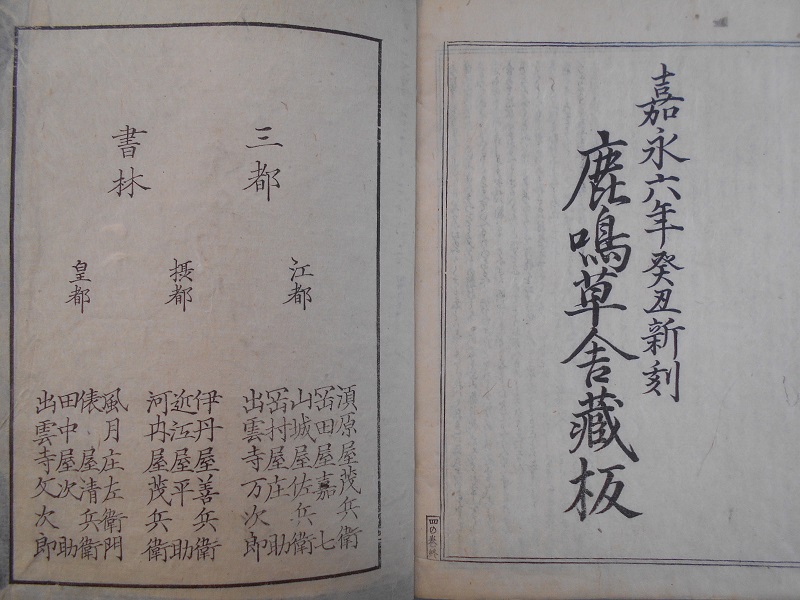 嘉永六年癸丑新刻
鹿鳴草舎藏板
三都
書林
江都
須原屋茂兵衛
岡田屋嘉七
山城屋佐兵衛
岡村屋庄助
出雲寺万次郎
摂都
伊丹屋善兵衛
近江屋平助
河内屋茂兵衛
皇都
風月庄左衛門
俵屋清兵衛
田中屋次助
出雲寺文次郎